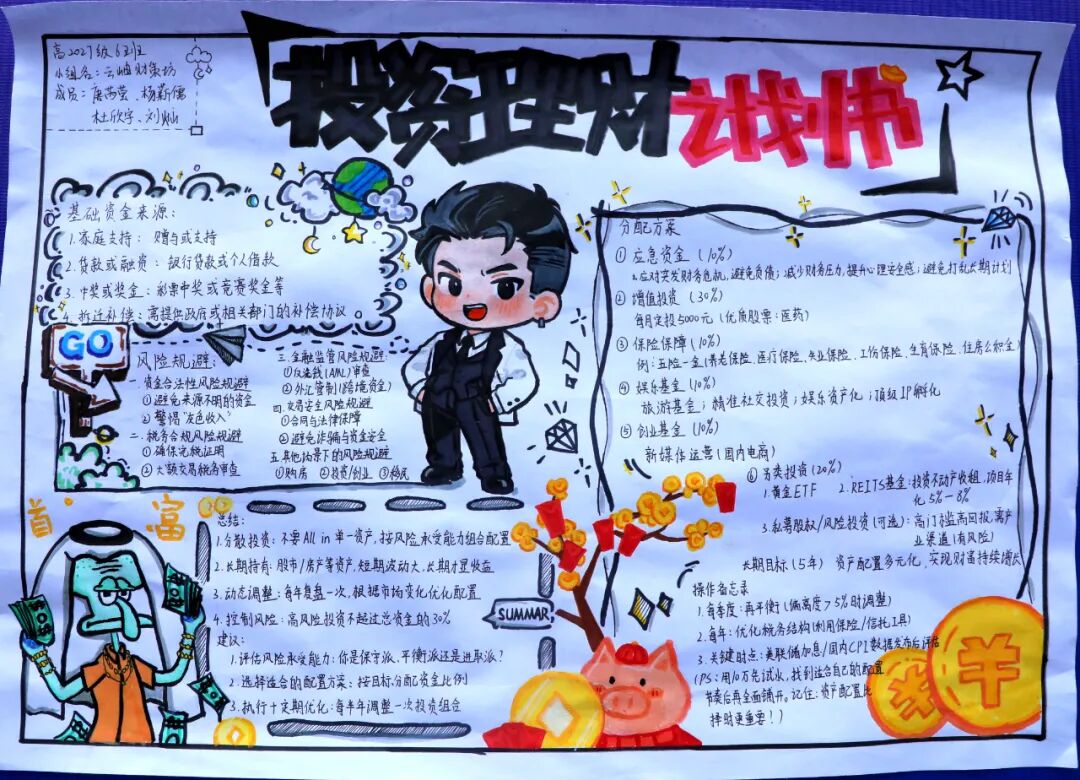 高2027级6班
小组名：云岫财策坊
成员：唐芮萤、杨蕲儒
杜欣宇、刘灿
投资理财计划书
基础资金来源：
1.家庭支持：赠与或支持
2.贷款或融资：银行贷款或个人借款
3.中奖或奖金：彩票中奖或竞赛奖金等
4.拆迁补偿：需提供政府或相关部门的补偿协议
GO
风险规避：
一.资金合法性风险规避
①避免来源不明的资金
②警惕“灰色收入”
二.税务合规风险规避
①确保完税证明
②大额交易税务审查
三.金融监管风险规避
①反洗钱(AML)审查
②外汇管制(跨境资金)
四.交易安全风险规避
①合同与法律保障
②避免诈骗与资金安全
五.其他场景下的风险规避
①购房 ②投资/创业 ③移民
分配方案
①应急资金(10%)
a.应对突发财务危机,避免负债；减少财务压力,提升心理安全感；避免打乱长期计划
②增值投资(30%)
每月定投5000元(优质股票:医药)
③保险保障(10%)
例:五险一金(养老保险、医疗保险、失业保险、工伤保险、生育保险、住房公积金)
④娱乐基金(10%)
旅游基金；精准社交投资；娱乐资产化；顶级IP孵化
⑤创业基金(10%)
新媒体运营(国内电商)
⑥另类投资(20%)
1.黄金ETF 2.REITS基金:投资不动产收租,项目年
化5%-8%
3.私募股权/风险投资(可选):高门槛高回报,需产
业渠道(有风险)
长期目标(5年) 资产配置多元化,实现财富持续增长
首富
总结:
1.分散投资:不要All in单一资产,按风险承受能力组合配置
2.长期持有:股市/房产等资产,短期波动大,长期才显收益
3.动态调整:每年复盘一次,根据市场变化优化配置
4.控制风险:高风险投资不超过总资金的30%
建议:
1.评估风险承受能力:你是保守派、平衡派还是进取派?
2.选择适合的配置方案:按目标分配资金比例
3.执行+定期优化:每半年调整一次投资组合
SUMMAR
操作备忘录
1.每季度:再平衡(偏离度>5%时调整)
2.每年:优化税务结构(利用保险/信托工具)
3.关键时点:美联储加息/国内CPI数据发布后评估
(PS:用10万先试水,找到适合自己的配置
节奏后再全面铺开。记住:资产配置比
择时更重要!)
¥
¥